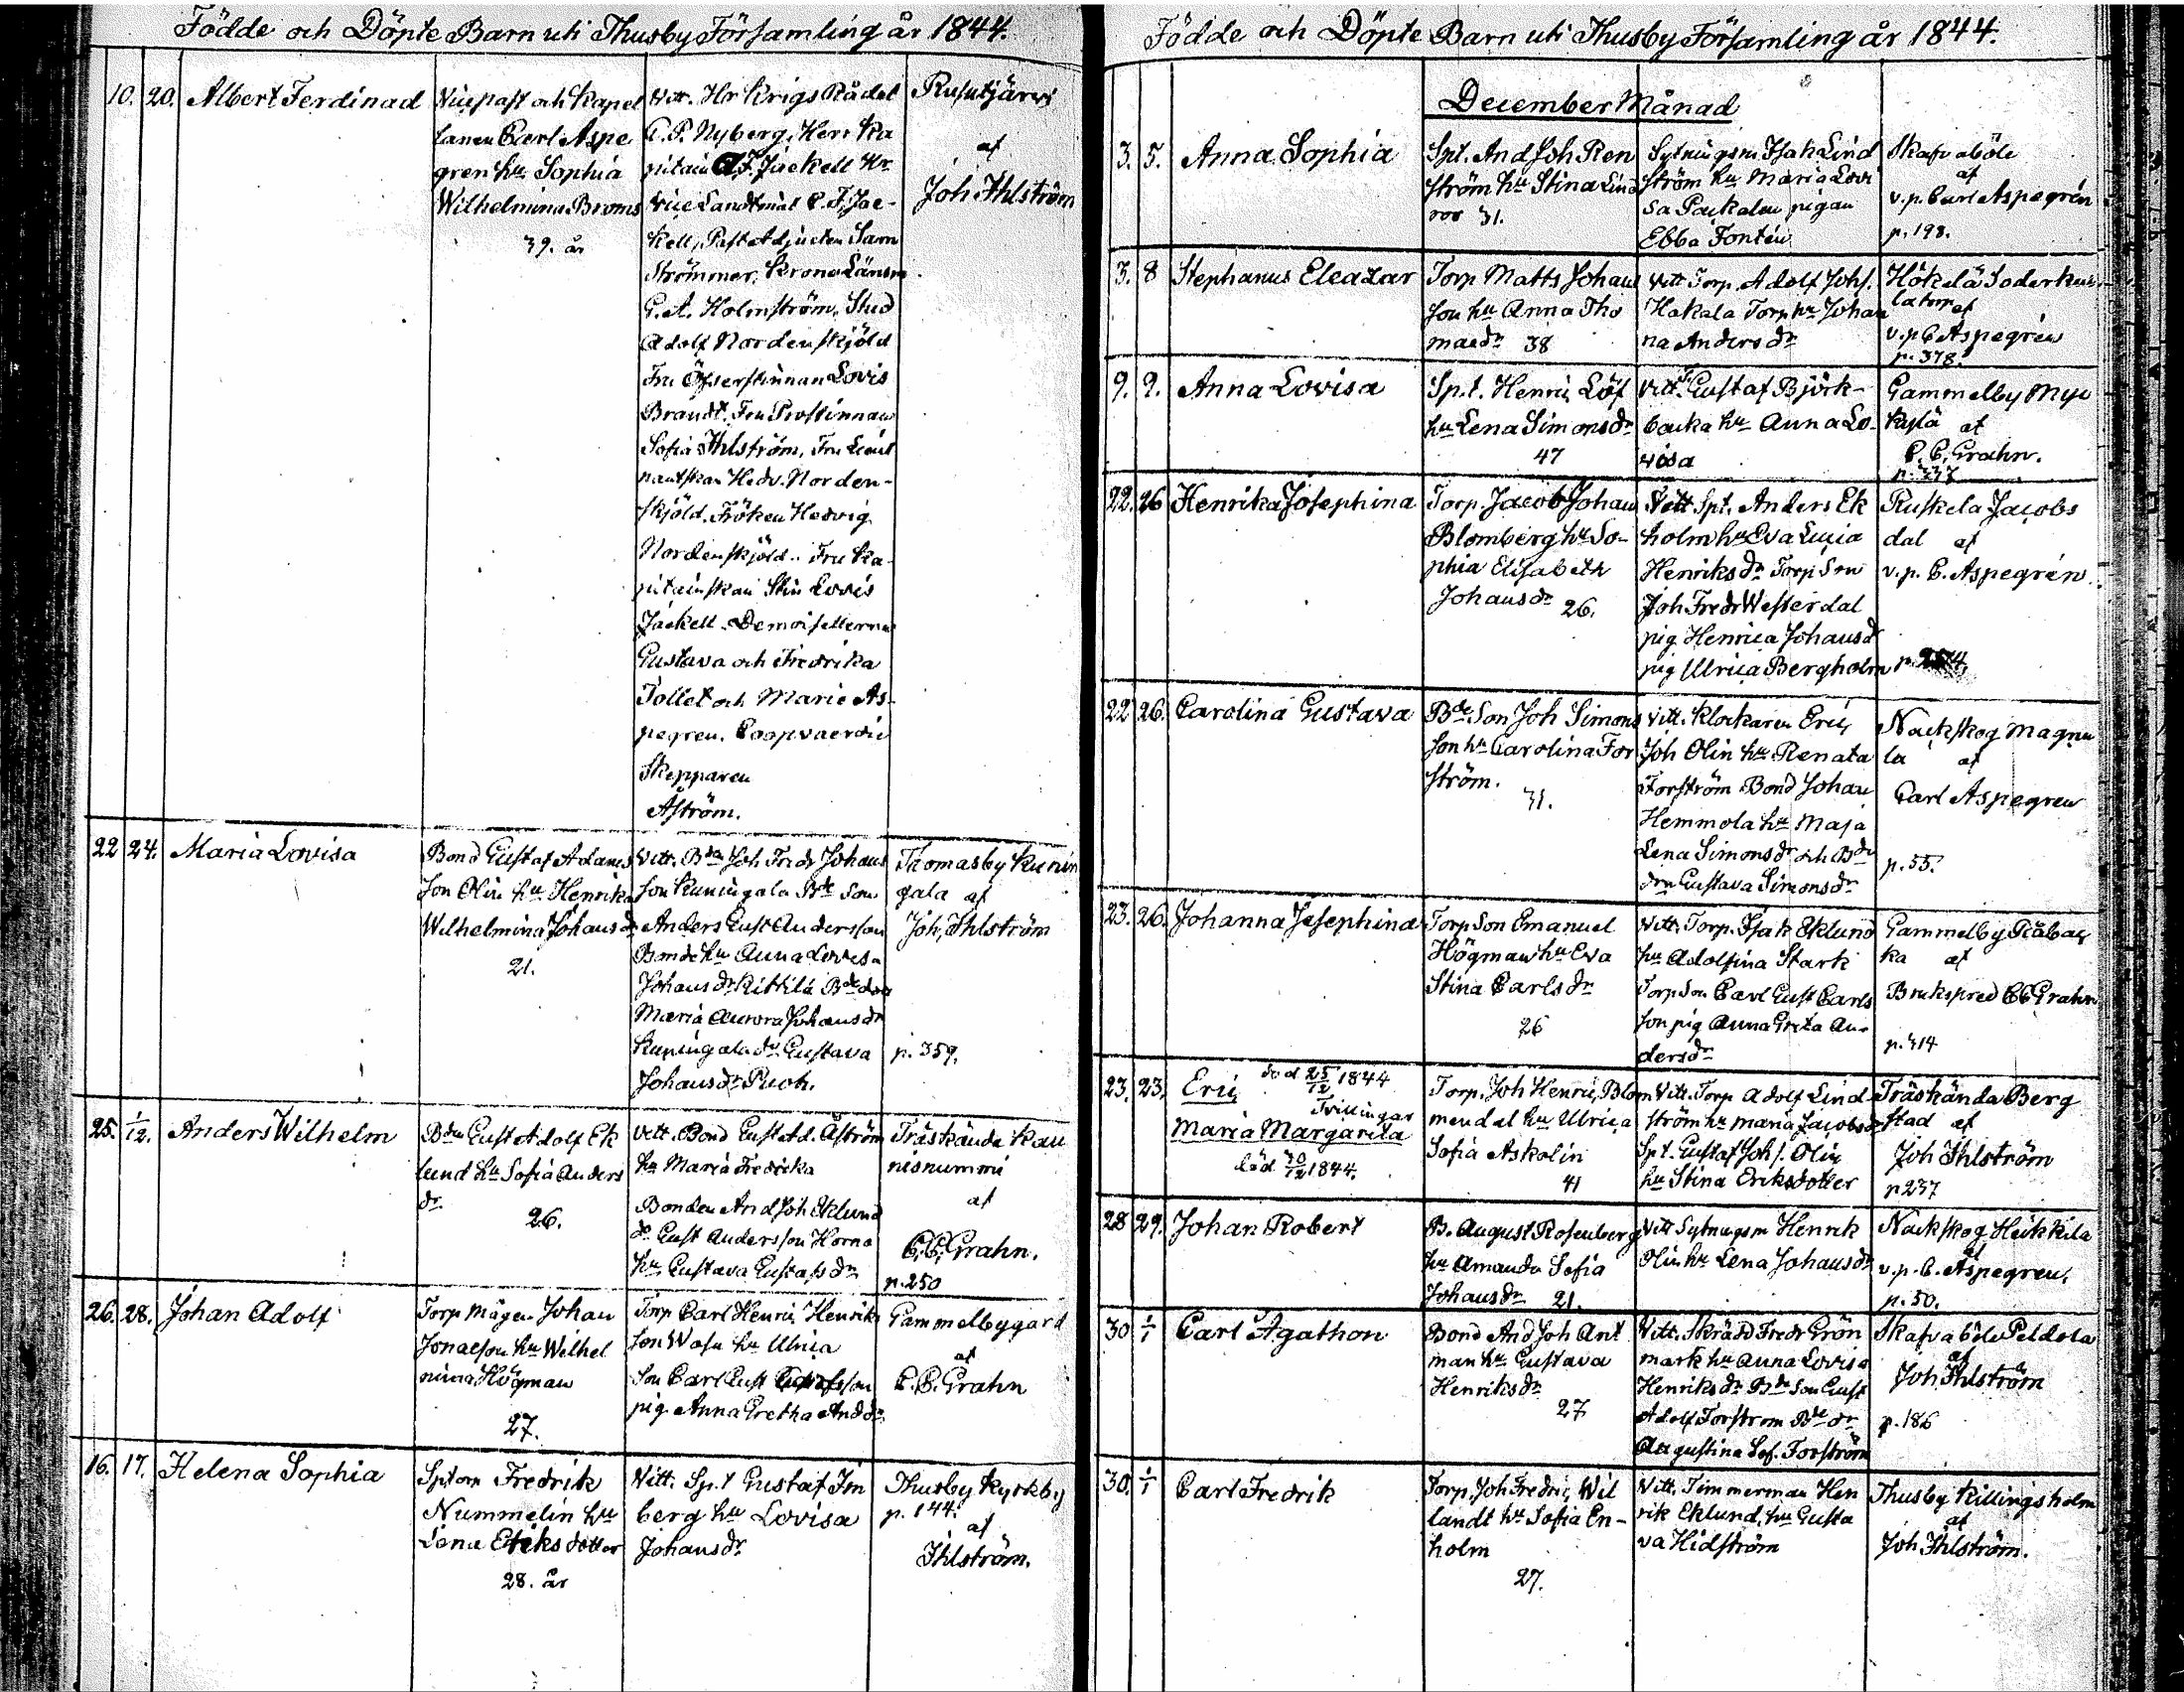 Födde och Döpte Barn uti Thusby Församling år 1844.
10. 20. Albert Ferdinad
Vicepast och Kapel
lanen Carl Aspe
gren hu Sophia
Wilhelmina Broms
39. år
Vitt. Hr Krigs Rådet
C. P. Nyberg, Herr Ka
pitain A. F. Jäckell Hr
Vice Landtmät C. F. Jae-
kell, Past Adjucten Sam
Strömmer, Krono Länsm
G. A. Holmström, Stud
Adolf Nordenskjöld
Fru Öfverstinnan Lovis
Brandt, Fru Prostinnan
Sofia Ihlström, Fru Lieut
nantskan Hedv. Norden-
skjöld, Fröken Hedvig
Nordenskjöld.. Fru Ka
pitainskan Stin Lovis
Jäckell. Demoisellerna
Gustava och Fredrika
Tollet och Marie As-
pegren. Coopvaerdie
Skepparen
Åström.
Rusutjärvi
af
Joh Ihlström
22 24. Maria Lovisa
Bond Gustaf Adams
son Olin hu Henrika
Wilhelmina Johansdr
21.
Vitt. Bdn Joh. Fredr Johans
son Kuningala Bde Son
Anders Gust Andersson
Bonde hu Anna Lovisa
Johansdr Kittilä Bde dotr
Maria Aurora Johansdr
Kuningala dr Gustava
Johansdr Puoh.
Thomasby Kunin
gala af
Joh, Ihlström
p. 359.
25. 1/12. Anders Wilhelm
Bdn Gust Adolf Ek
lund hu Sofia Anders
dr
26.
Vitt. Bond Gust Ad. Åström
hu Maria Fredrika
Bonden And Joh Eklund
dr Gust Andersson Horna
hu Gustava Gustafsdr
Träskända Kau
nisnummi
af
C. C. Grahn.
p. 250
26. 28. Johan Adolf
Torp mågen Johan
Jonaeson hu Wilhel
mina Högman
27.
Torp Carl Henric Henriks
son Wasu hu Ulrica
Son Carl Gust Gustafsson
pig. Anna Gretha And dr
Gammelbygard
af
C. C. Grahn
16. 17. Helena Sophia
Sptorp Fredrik
Nummelin hu
Lena Eriksdotter
28. år
Vitt. Sp.t Gustaf Im
berg hu Lovisa
Johansdr.
Thusby Kyrkby
p. 144.
af
Ihlström.
Födde och Döpte Barn uti Thusby Församling år 1844.
December Månad
3. 5. Anna Sophia
Spt. And Joh Ren
ström hu Stina Lind
ros 31.
Sytningsm Isak Lind
ström hu Maria Lovi
sa Paikalen pigan
Ebba Fontén
Skafvaböle
af
v. p. Carl Aspegrén
p. 198.
3. 8 Stephanus Eleazar
Torp Matts Johans
son hu Anna Tho
maedr 38
Vitt Torp. Adolf Johs.
Hakala Torp hu Johan
na Andersdr
Hökelä Soderkul
la torp af
v. p. C Aspegrén
p. 378.
9. 9. Anna Lovisa
Sp.t. Henric Löf
hu Lena Simonsdr
47
Vitt. Gustaf Björk-
backa hu Anna Lo-
visa
Gammelby Myc
kylä af
C. C. Grahn.
p. 337
22. 26 Henrika Josephina
Torp. Jacob Johan
Blomberg hu So-
phia Elisabeth
Johansdr 26.
Vitt Spt. Anders Ek
holm hu Eva Lucia
Henriksdr Torp Son
Joh Fredr Westerdal
pig Henrica Johansdr
pig Ulrica Bergholm
Ruskela Jacobs
dal af
v. p. C. Aspegrén.
22 26. Carolina Gustava
Bde Son Joh Simons
son hu Carolina For
ström.
31.
Vitt. Klockaren Eric
Joh Olin hu Renata
Forström Bond Johan
Hemmola hu Maja
Lena Simonsdr och Bde
drn Gustava Simonsdr
Nackskog Magnu
la af
Carl Aspegren
p. 55.
23. 26. Johanna Josephina
Torp Son Emanuel
Högman hu Eva
Stina Carlsdr
26
Vitt. Torp. Isak Eklund
hu Adolfina Stark
Torp Son Carl Gust Carls
son pig Anna Greta An-
dersdr
Gammelby Råbac
ka af
Brukspred C C Grahn
p. 314
23. 23. Eric död 25/12 1844
Tvillingar
Maria Margarita
död 30/12 1844.
Torp. Joh Henric Blom
mendal hu Ulrica
Sofia Askolin
41
Vitt. Torp Adolf Lind
ström hu Maria Jacobsdr
Spt. Gustaf Johs. Olin
hu Stina Eriksdotter
Träskända Berg
stad af
Joh Ihlström
p 237
28 29. Johan Robert
B. August Rosenberg
hu Amanda Sofia
Johansdr 21.
Vitt Sytnugsm Henrik
Olin hu Lena Johansdr
Nackskog Heikkila
af
v. p. C. Aspegren.
p. 50.
30 1/1 Carl Agathon
Bond And Joh Ant
man hu Gustava
Henriksdr
27
Vitt. Skrädd Fredr Grön
mark hu Anna Lovisa
Henriksdr Bde Son Gust
Adolf Forstrom Bde dr
Augustina Sof. Forström
Skafvaböle Peldola
af
Joh, Ihlström
p. 186
30. 1/1 Carl Fredrik
Torp. Joh Fredric Wil
landt hu Sofia En-
holm
27.
Vitt. Timmerman Hen
rik Eklund, hu Gusta
va Hidström
Thusby Killingsholm
af
Joh Ihlström.